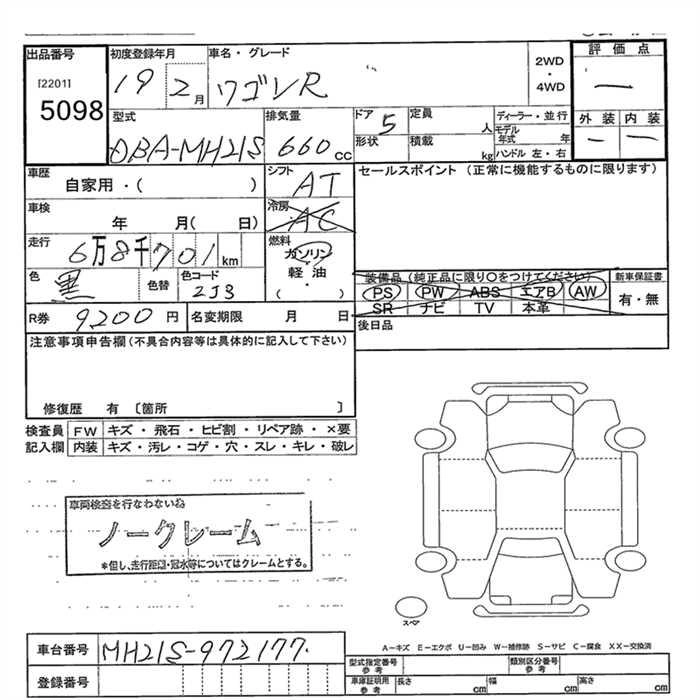 出品番号
[2201]
5098
初度登録年月
19 2月
車名・グレード
ワゴンR
2WD
・
4WD
評価点
—
外装 内装
— —
型式
DBA-MH21S
排気量
660 cc
ドア 5
形状
定員 人
積載 kg
ディーラー・並行
モデル年式 年
ハンドル 左・右
車歴
自家用・( )
シフト
AT
セールスポイント (正常に機能するものに限ります)
車検
年 月( 日)
冷房
AC
走行
6万8千701km
燃料
ガソリン
軽油
( )
色 黒 色替
色コード
ZJ3
装備品(純正品に限り○をつけてください)
PS PW ABS エアB AW
SR ナビ TV 本革
新車保証書
有・無
R券 9200円
名変期限 月 日
後日品
注意事項申告欄(不具合内容等は具体的に記入して下さい)
修復歴 有 〔箇所 〕
検査員記入欄
FW キズ・飛石・ヒビ割・リペア跡・×要
内装 キズ・汚レ・コゲ・穴・スレ・キレ・破レ
車両検査を行なわないね
ノークレーム
*但し、走行距離・冠水等についてはクレームとする。
スペア
A-キズ E-エクボ U-凹み W-補修跡 S-サビ C-腐食 XX-交換済
車台番号
MH21S-972177
登録番号
型式指定番号 参考
類別区分番号 参考
車庫証明用 参考
長さ cm 幅 cm 高さ cm